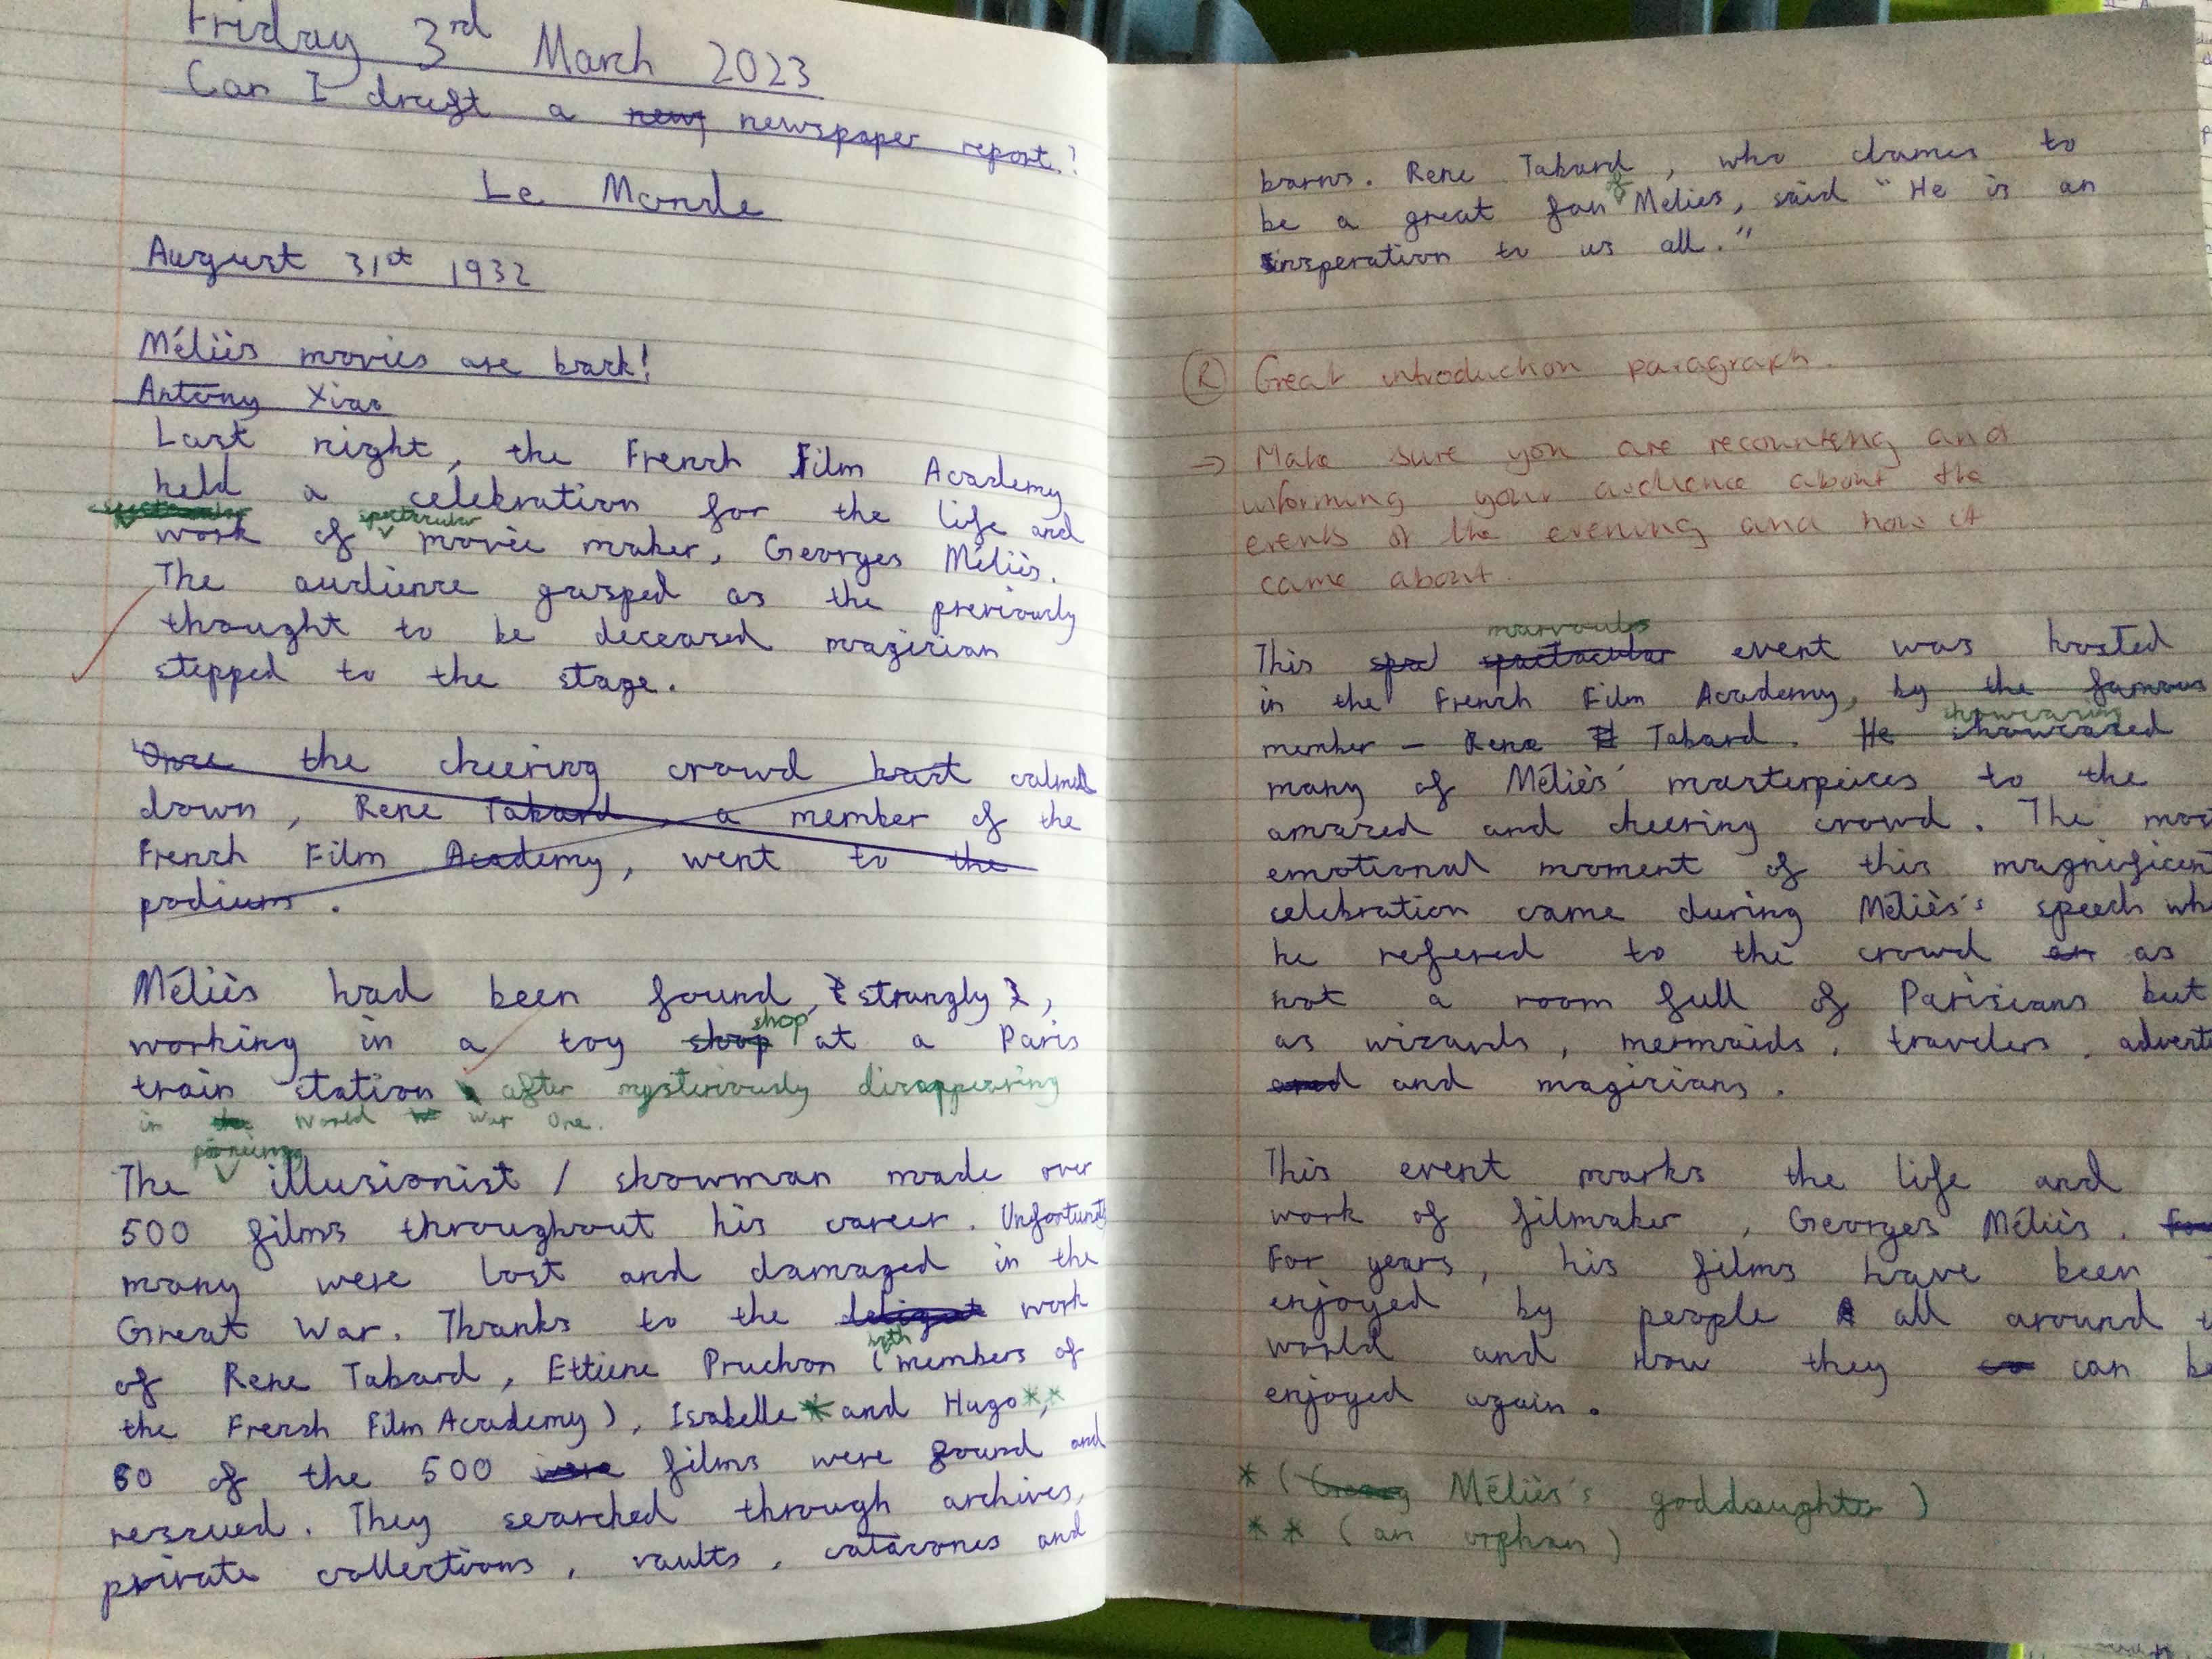 Friday 3rd March 2023
Can I draft a newspaper report?
Le Monde
August 31st 1932
Méliès movies are back!
Antony Xiao
Last night, the French Film Academy
held a celebration for the life and
work of spectacular movie maker, Georges Méliès.
The audience gasped as the previously
thought to be deceased magician
stepped to the stage.
Once the cheering crowd calmed
down, Rene Tabard, a member of the
French Film Academy, went to the
podium.
Méliès had been found, strangly,
working in a toy shop at a Paris
train station after mysteriously disappearing
in World War One.
The illusionist / showman made over
500 films throughout his career.
many were lost and damaged in the
Great War. Thanks to the work
of Rene Tabard, Ettiene Pruchon (both members of
the French Film Academy), Isabelle* and Hugo**,
60 of the 500 films were found and
rescued. They searched through archives,
private collections, vaults, catacones and
barns. Rene Tabard, who clames to
be a great fan of Melies, said "He is an
insperation to us all."
R Great introduction paragraph.
→ Make sure you are recounting and
informing your audience about the
events of the evening and how it
came about.
This marvoulos event was hosted
in the French Film Academy, by the famous
member - Rene Tabard. He showcased showcasing
many of Méliès' masterpeices to the
amazed and cheering crowd. The
emotional moment of this magnificent
celebration came during Méliès's speech
he refered to the crowd as
not a room full of Parisians but
as wizards, mermaids, travelers,
and magicians.
This event marks the life and
work of filmaker, Georges Méliès.
For years, his films have been
enjoyed by people all around
world and now they can be
enjoyed again.
* (Méliès's goddaughter)
** (an orphan)